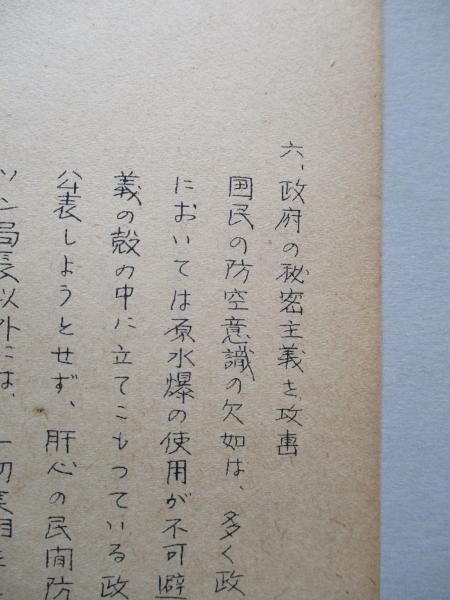 六、政府の秘密主義を攻撃
国民の防空意識の欠如は、多く政
においては原水爆の使用が不可避
義の殻の中に立てこもつている政
公表しようとせず、肝心の民間防
ソン局長以外には、一切真相を